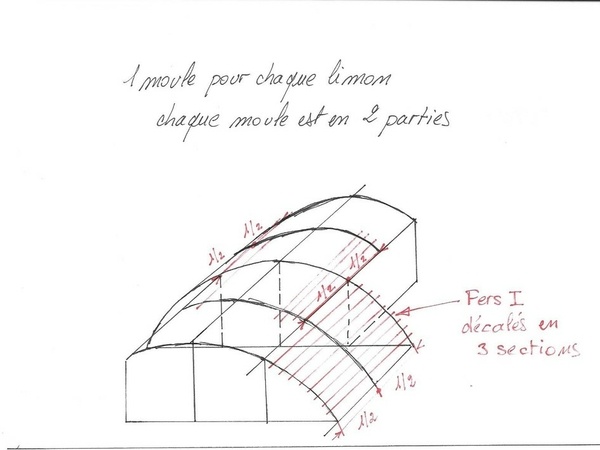 1 moule pour chaque limon
chaque moule est en 2 parties
1/2
1/2
1/2
1/2
Fers I
décalés en
3 sections
1/2
1/2